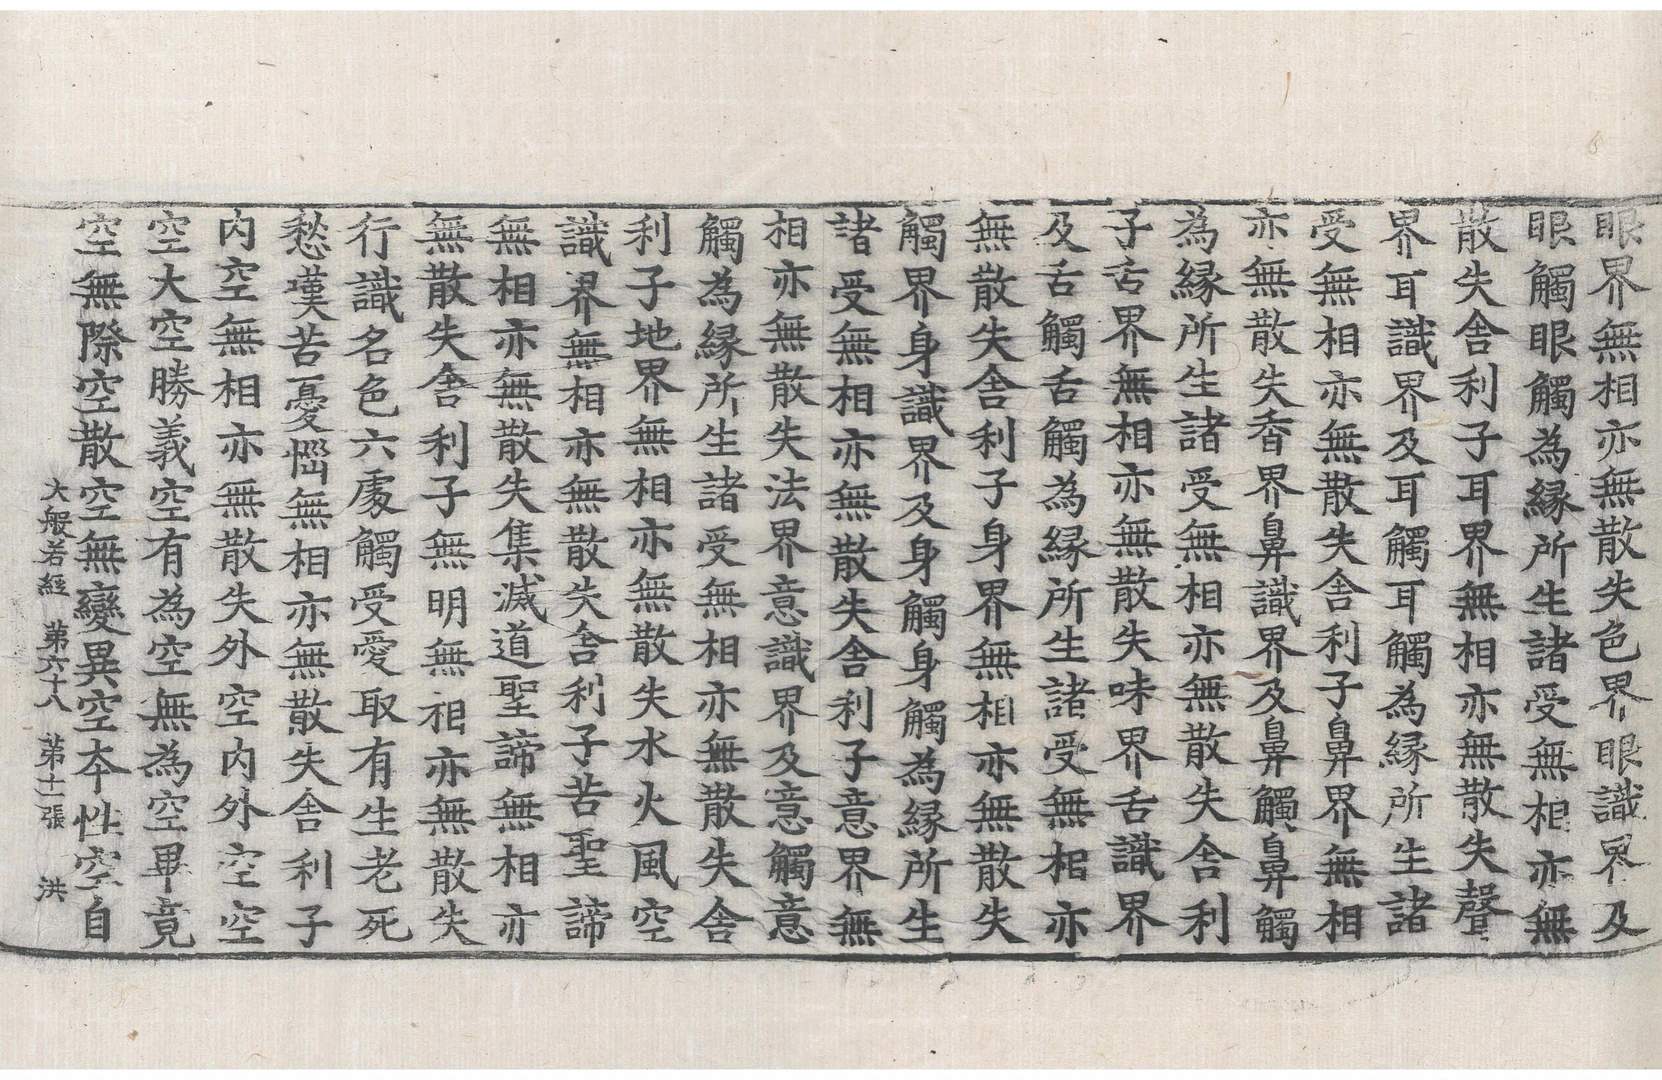 眼界無相亦無散失色界眼識界及
眼觸眼觸為縁所生諸受無相亦無
散失舎利子耳界無相亦無散失聲
界耳識界及耳觸耳觸為縁所生諸
受無相亦無散失舎利子鼻界無相
亦無散失香界鼻識界及鼻觸鼻觸
為縁所生諸受無相亦無散失舎利
子舌界無相亦無散失味界舌識界
及舌觸舌觸為縁所生諸受無相亦
無散失舎利子身界無相亦無散失
觸界身識界及身觸身觸為縁所生
諸受無相亦無散失舎利子意界無
相亦無散失法界意識界及意觸意
觸為縁所生諸受無相亦無散失舎
利子地界無相亦無散失水火風空
識界無相亦無散失舎利子苦聖諦
無相亦無散失集滅道聖諦無相亦
無散失舎利子無明無相亦無散失
行識名色六處觸受愛取有生老死
愁嘆苦憂惱無相亦無散失舎利子
内空無相亦無散失外空内外空空
空大空勝義空有為空無為空畢竟
空無際空散空無變異空夲性空自
大般若經 苐六十八 苐十一張 洪